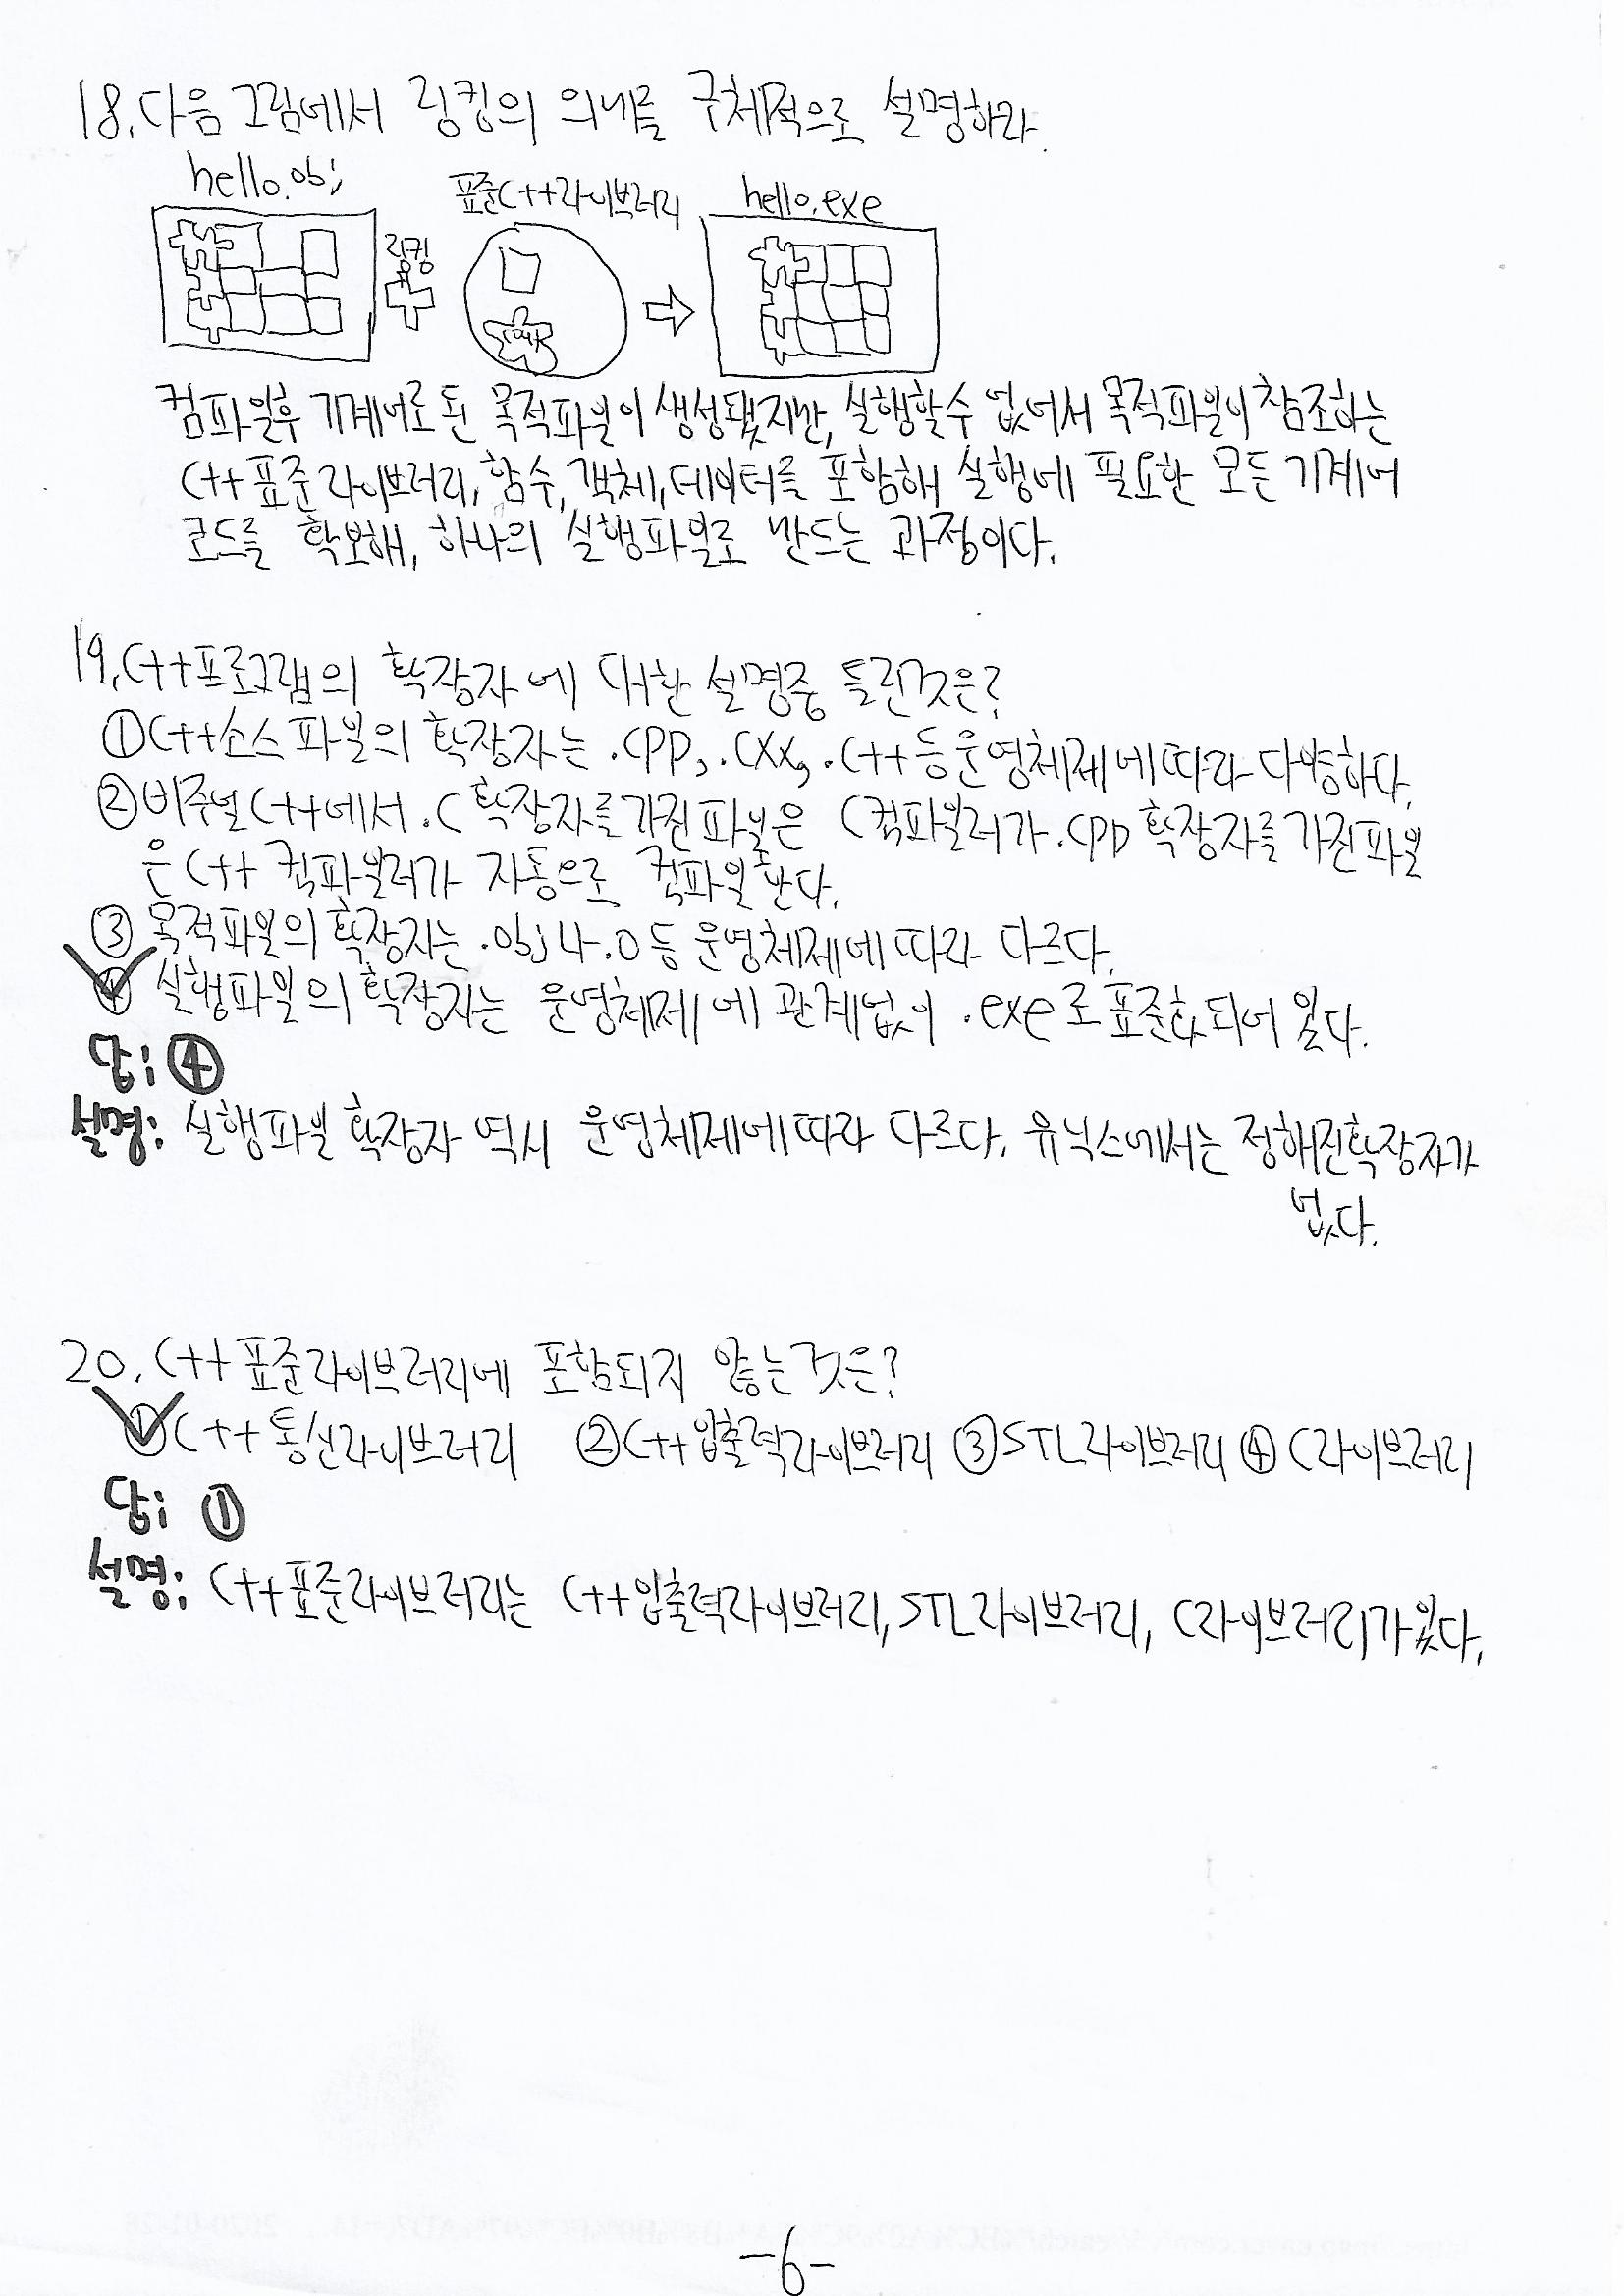 18. 다음 그림에서 링킹의 의미를 구체적으로 설명하라.
hello.obj 표준C++라이브러리 hello.exe
링킹
컴파일후 기계어로 된 목적파일이 생성됐지만, 실행할수 없어서 목적파일이 참조하는
C++ 표준 라이브러리, 함수, 객체, 데이터를 포함해 실행에 필요한 모든 기계어
코드를 확보해, 하나의 실행파일로 만드는 과정이다.
19. C++프로그램의 확장자에 대한 설명중 틀린것은?
① C++소스파일의 확장자는 .cpp, .cxx, .c++ 등 운영체제에 따라 다양하다.
② 비주얼 C++에서 .C 확장자를 가진파일은 C컴파일러가 .cpp 확장자를 가진파일
은 C++ 컴파일러가 자동으로 컴파일한다.
③ 목적파일의 확장자는 .obj나 .o 등 운영체제에 따라 다르다.
④ 실행파일의 확장자는 운영체제에 관계없이 .exe로 표준화되어 있다.
답: ④
설명: 실행파일 확장자 역시 운영체제에 따라 다르다. 유닉스에서는 정해진확장자가
없다.
20. C++표준라이브러리에 포함되지 않는것은?
① C++통신라이브러리 ② C++입출력라이브러리 ③ STL라이브러리 ④ C라이브러리
답: ①
설명: C++표준라이브러리는 C++입출력라이브러리, STL라이브러리, C라이브러리가있다.
-6-